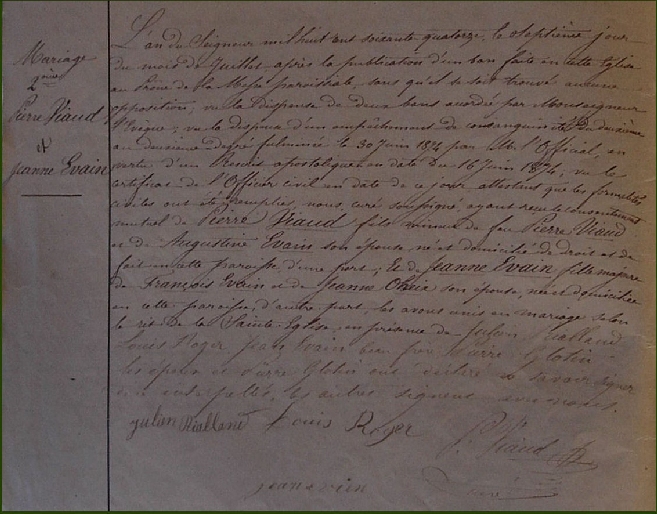 Mariage
2ème
Pierre Viaud
et
Jeanne Evain
L'an du Seigneur mil huit cent soixante quatorze, le septième jour
du mois de Juillet, après la publication d'un ban faite en cette Eglise
au Prône de la Messe paroissiale, sans qu'il se soit trouvé aucune
opposition; vu la Dispense de deux bans accordée par Monseigneur
l'Evêque; vu la dispense d'un empêchement de consanguinité du deuxième
au deuxième degré fulminée le 30 Juin 1874 par Mr l'Official, en
vertu d'un Rescrit apostolique en date du 16 Juin 1874; vu le
certificat de l'Officier civil en date de ce jour attestant que les formalités
civiles ont été remplies, nous, curé soussigné, ayant reçu le consentement
mutuel de Pierre Viaud fils mineur de feu Pierre Viaud
et de Augustine Evain son épouse, né et domicilié de droit et de
fait en cette paroisse, d'une part; Et de Jeanne Evain, fille majeure
de François Evain et de Jeanne son épouse, née et domiciliée
en cette paroisse, d'autre part, les avons unis en mariage selon
le rit de la Sainte Eglise, en présence de Julien
Louis Roger, Jean Evain, Pierre Glotin
les époux et Pierre Glotin ont déclaré ne savoir signer
de ce interpellés, les autres signent avec nous.
julien Louis Roger
P. Viaud
jean evien